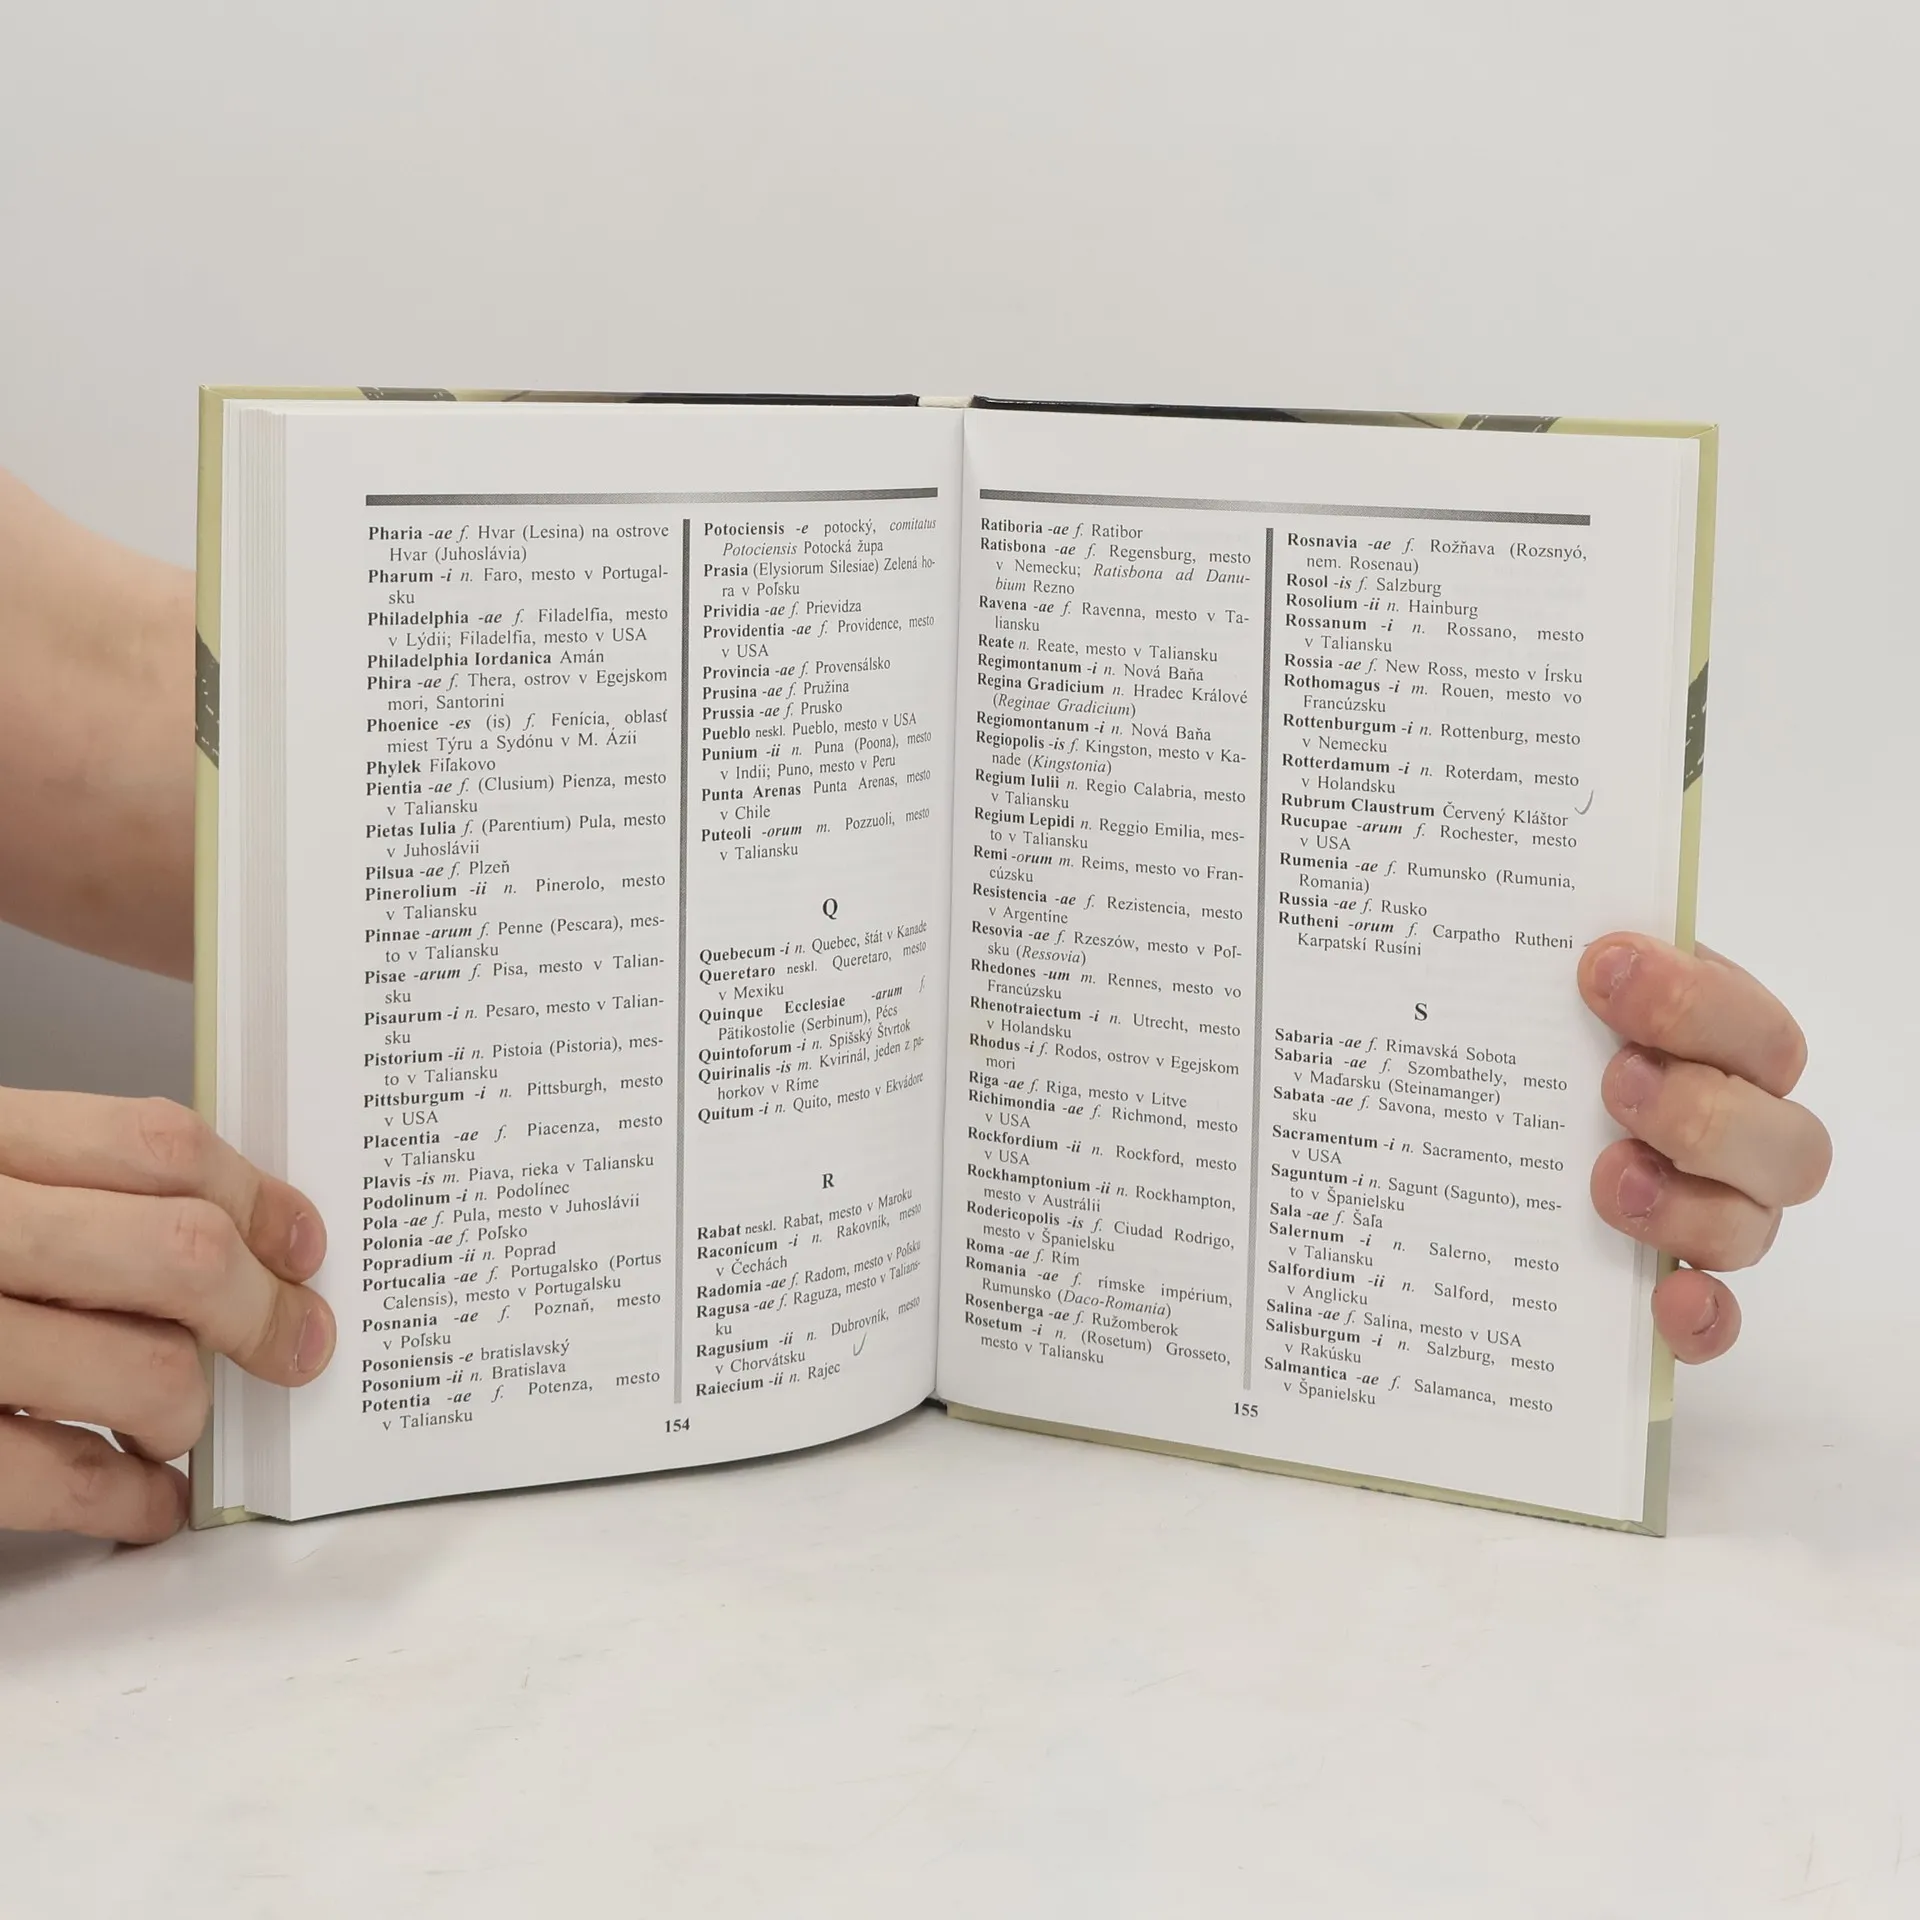 Pharia -ae f. Hvar (Lesina) na ostrove
Hvar (Juhoslávia)
Pharum -i n. Faro, mesto v Portugal-
sku
Philadelphia -ae f. Filadelfia, mesto
v Lýdii; Filadelfia, mesto v USA
Philadelphia Iordanica Amán
Phira -ae f. Thera, ostrov v Egejskom
mori, Santorini
Phoenice -es (is) f. Fenícia, oblasť
miest Týru a Sydónu v M. Ázii
Phylek Fiľakovo
Pientia -ae f. (Clusium) Pienza, mesto
v Taliansku
Pietas Iulia f. (Parentium) Pula, mesto
v Juhoslávii
Pilsua -ae f. Plzeň
Pinerolium -ii n. Pinerolo, mesto
v Taliansku
Pinnae -arum f. Penne (Pescara), mes-
to v Taliansku
Pisae -arum f. Pisa, mesto v Talian-
sku
Pisaurum -i n. Pesaro, mesto v Talian-
sku
Pistorium -ii n. Pistoia (Pistoria), mes-
to v Taliansku
Pittsburgum -i n. Pittsburgh, mesto
v USA
Placentia -ae f. Piacenza, mesto
v Taliansku
Plavis -is m. Piava, rieka v Taliansku
Podolinum -i n. Podolínec
Pola -ae f. Pula, mesto v Juhoslávii
Polonia -ae f. Poľsko
Popradium -ii n. Poprad
Portucalia -ae f. Portugalsko (Portus
Calensis), mesto v Portugalsku
Posnania -ae f. Poznaň, mesto
v Poľsku
Posoniensis -e bratislavský
Posonium -ii n. Bratislava
Potentia -ae f. Potenza, mesto
v Taliansku
Potociensis -e potocký, comitatus
Potociensis Potocká župa
Prasia (Elysiorum Silesiae) Zelená ho-
ra v Poľsku
Prividia -ae f. Prievidza
Providentia -ae f. Providence, mesto
v USA
Provincia -ae f. Provensálsko
Prusina -ae f. Pružina
Prussia -ae f. Prusko
Pueblo neskl. Pueblo, mesto v USA
Punium -ii n. Puna (Poona), mesto
v Indii; Puno, mesto v Peru
Punta Arenas Punta Arenas, mesto
v Chile
Puteoli -orum m. Pozzuoli, mesto
v Taliansku
Q
Quebecum -i n. Quebec, štát v Kanade
Queretaro neskl. Queretaro, mesto
v Mexiku
Quinque Ecclesiae -arum f.
Pätikostolie (Serbinum), Pécs
Quintoforum -i n. Spišský Štvrtok
Quirinalis -is m. Kvirinál, jeden z pa-
horkov v Ríme
Quitum -i n. Quito, mesto v Ekvádore
R
Rabat neskl. Rabat, mesto v Maroku
Raconicum -i n. Rakovník, mesto
v Čechách
Radomia -ae f. Radom, mesto v Poľsku
Ragusa -ae f. Raguza, mesto v Talians-
ku
Ragusium -ii n. Dubrovník, mesto
v Chorvátsku
Raiecium -ii n. Rajec
154
Ratiboria -ae f. Ratibor
Ratisbona -ae f. Regensburg, mesto
v Nemecku; Ratisbona ad Danu-
bium Rezno
Ravena -ae f. Ravenna, mesto v Ta-
liansku
Reate n. Reate, mesto v Taliansku
Regimontanum -i n. Nová Baňa
Regina Gradicium n. Hradec Králové
(Reginae Gradicium)
Regiomontanum -i n. Nová Baňa
Regiopolis -is f. Kingston, mesto v Ka-
nade (Kingstonia)
Regium Iulii n. Regio Calabria, mesto
v Taliansku
Regium Lepidi n. Reggio Emilia, mes-
to v Taliansku
Remi -orum m. Reims, mesto vo Fran-
cúzsku
Resistencia -ae f. Rezistencia, mesto
v Argentíne
Resovia -ae f. Rzeszów, mesto v Poľ-
sku (Ressovia)
Rhedones -um m. Rennes, mesto vo
Francúzsku
Rhenotraiectum -i n. Utrecht, mesto
v Holandsku
Rhodus -i f. Rodos, ostrov v Egejskom
mori
Riga -ae f. Riga, mesto v Litve
Richimondia -ae f. Richmond, mesto
v USA
Rockfordium -ii n. Rockford, mesto
v USA
Rockhamptonium -ii n. Rockhampton,
mesto v Austrálii
Rodericopolis -is f. Ciudad Rodrigo,
mesto v Španielsku
Roma -ae f. Rím
Romania -ae f. rímske impérium,
Rumunsko (Daco-Romania)
Rosenberga -ae f. Ružomberok
Rosetum -i n. (Rosetum) Grosseto,
mesto v Taliansku
Rosnavia -ae f. Rožňava (Rozsnyó,
nem. Rosenau)
Rosol -is f. Salzburg
Rosolium -ii n. Hainburg
Rossanum -i n. Rossano, mesto
v Taliansku
Rossia -ae f. New Ross, mesto v Írsku
Rothomagus -i m. Rouen, mesto vo
Francúzsku
Rottenburgum -i n. Rottenburg, mesto
v Nemecku
Rotterdamum -i n. Roterdam, mesto
v Holandsku
Rubrum Claustrum Červený Kláštor
Rucupae -arum f. Rochester, mesto
v USA
Rumenia -ae f. Rumunsko (Rumunia,
Romania)
Russia -ae f. Rusko
Rutheni -orum f. Carpatho Rutheni
Karpatskí Rusíni
S
Sabaria -ae f. Rimavská Sobota
Sabaria -ae f. Szombathely, mesto
v Maďarsku (Steinamanger)
Sabata -ae f. Savona, mesto v Talian-
sku
Sacramentum -i n. Sacramento, mesto
v USA
Saguntum -i n. Sagunt (Sagunto), mes-
to v Španielsku
Sala -ae f. Šaľa
Salernum -i n. Salerno, mesto
v Taliansku
Salfordium -ii n. Salford, mesto
v Anglicku
Salina -ae f. Salina, mesto v USA
Salisburgum -i n. Salzburg, mesto
v Rakúsku
Salmantica -ae f. Salamanca, mesto
v Španielsku
155